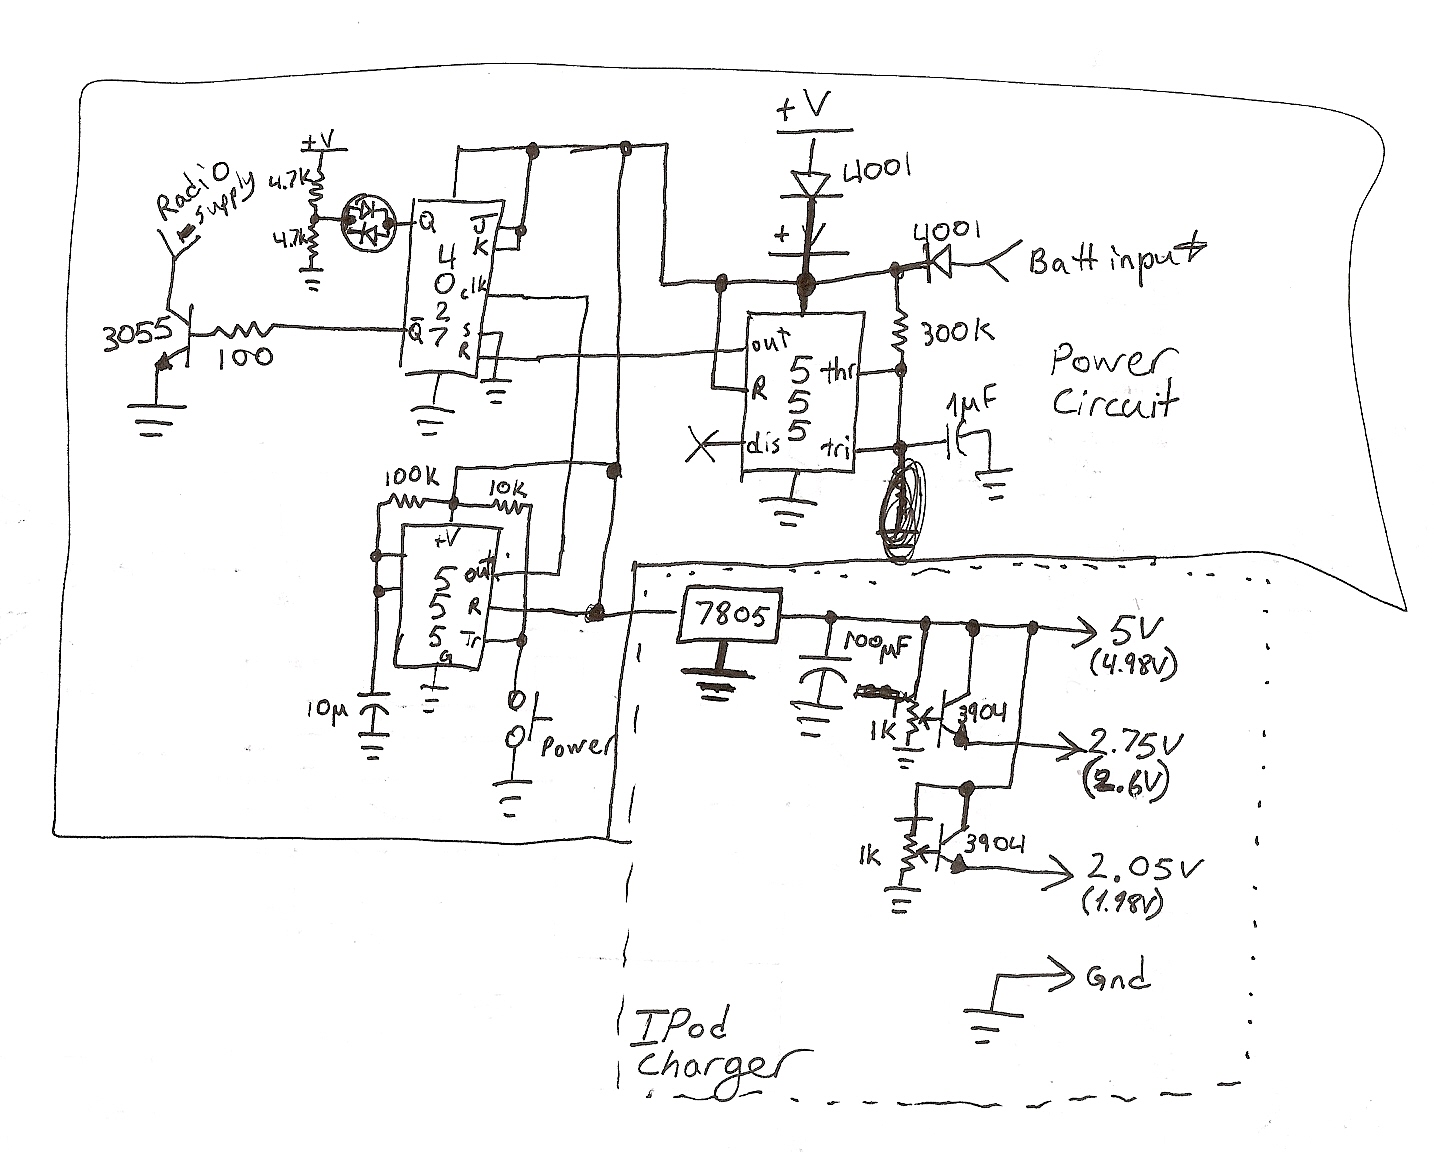 +V
+V
4001
Radio
supply
4.7K
4.7K
Q
J
K
4
0
2
7
clk
S
R
Q̅
3055
100
+V
4001
Batt input
out
R
dis
5
5
5
thr
tri
300K
1µF
Power
Circuit
100K
10K
+V
out
R
Tr
G
5
5
5
10µ
Power
7805
100µF
5V
(4.98V)
1K
3904
2.75V
(2.6V)
1K
3904
2.05V
(1.98V)
Gnd
IPod
Charger